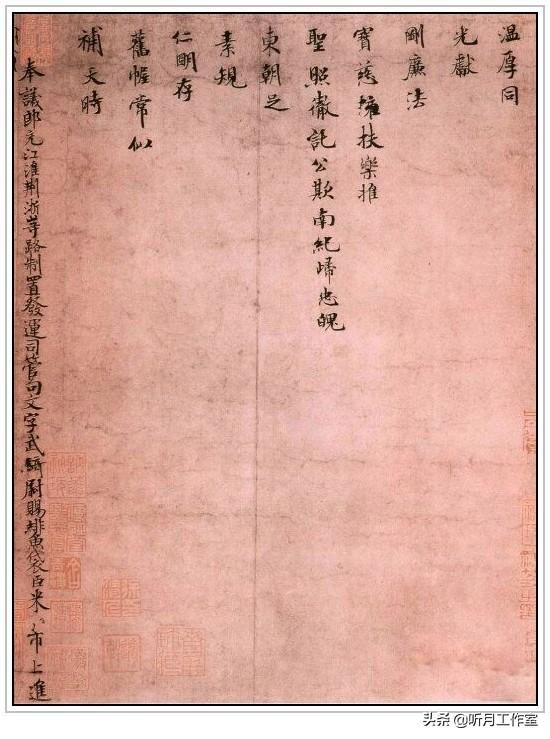 溫厚同
光獻
剛廉法
寶慈擁扶樂推
聖照徹託公欺南紀歸忠魄
東朝足
素規
仁明存
舊幄常似
補天時
奉議郎充江淮荊浙等路制置發運司管勾文字武騎尉賜緋魚袋臣米芾上進
头条 @听月工作室